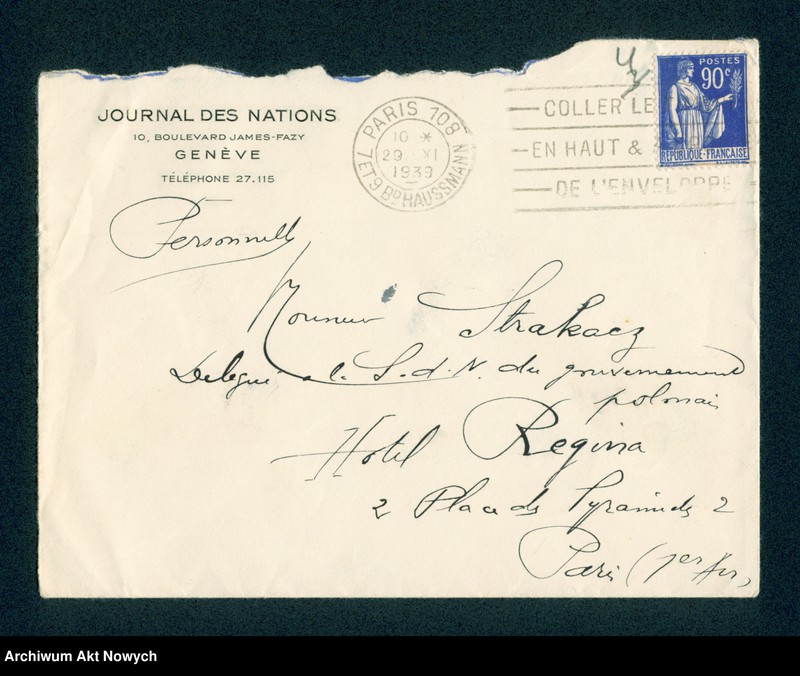 JOURNAL DES NATIONS
10, BOULEVARD JAMES-FAZY
GENÈVE
TÉLÉPHONE 27.115
PARIS 108
10 *
29 XI
1939
7 ET 9 Bᴰ HAUSSMANN
COLLER LE
EN HAUT &
DE L'ENVELOPPE
POSTES
90c
REPUBLIQUE-FRANÇAISE
Personnelle
Monsieur Strakacz
Delegué a la S.d.N. du gouvernement
polonais
Hotel Regina
2 Place des Pyramides 2
Paris (1er Arr)
Archiwum Akt Nowych